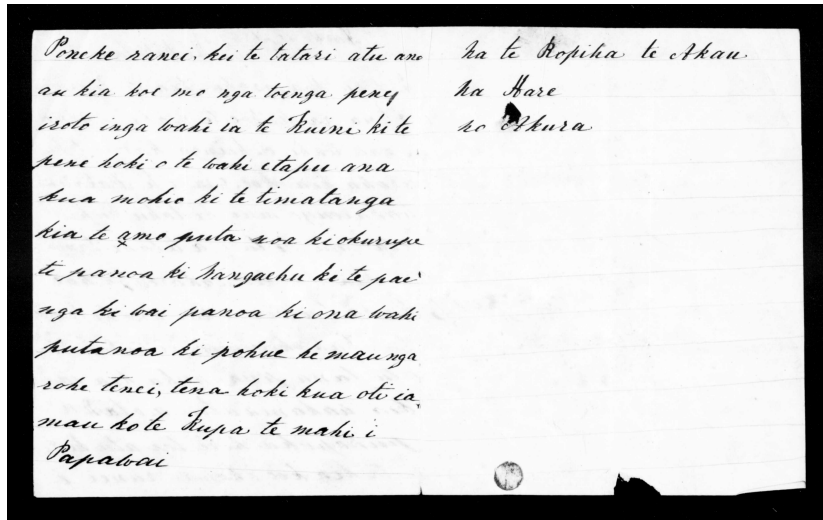 Poneke ranei, kei te tatari atu ano
au kia koe mo nga toenga penei
iroto inga wahi ia te Kuini ki te
pene hoki o te wahi etapu ana
kua mohio ki te timatanga
kia te amo puta noa kiokurupe
te panoa ki hangaehu ki te pae
nga ki wai panoa ki ona wahi
putanoa ki pohue he maunga
rohe tenei, tena hoki kua oti ia
mau ko te Kupa te mahi i
Papawai
na te Ropiha te Akau
na Hare
no Akura